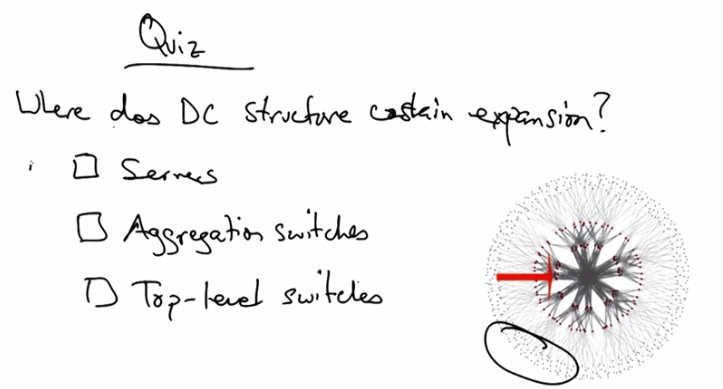 Quiz
Where does DC structure constain expansion?
Servers
Aggregation switches
Top-level switches